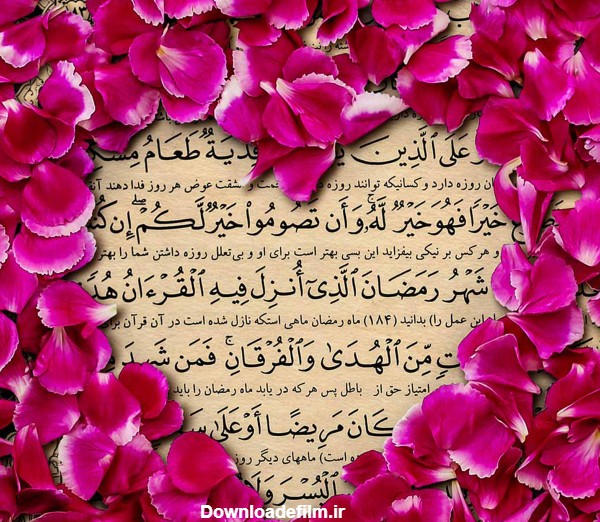 وَعَلَى ٱلَّذِينَ فِدْيَةٌ طَعَامُ
روزه دارد و کسانیکه توانند روزه و مشقت عوض هر روز فدا دهند
خَيْرًا فَهُوَ خَيْرٌ لَّهُۥ وَأَن تَصُومُوا۟ خَيْرٌ لَّكُمْ إِن
و هر کس بر نیکی بیفزاید این بسی بهتر است برای او و بی‌تعلل روزه داشتن شما را بهتر
شَهْرُ رَمَضَانَ ٱلَّذِىٓ أُنزِلَ فِيهِ ٱلْقُرْءَانُ
این عمل را) بدانید (۱۸۴) ماه رمضان ماهی استکه نازل شده است در آن قرآن
مِّنَ ٱلْهُدَىٰ وَٱلْفُرْقَانِ ۚ فَمَن
امتیاز حق از باطل پس هر که در یابد ماه رمضان را باید
كَانَ مَرِيضًا أَوْ عَلَىٰ
است) ماههای دیگر
ٱلْيُسْرَ وَلَا
Downloadefilm.ir